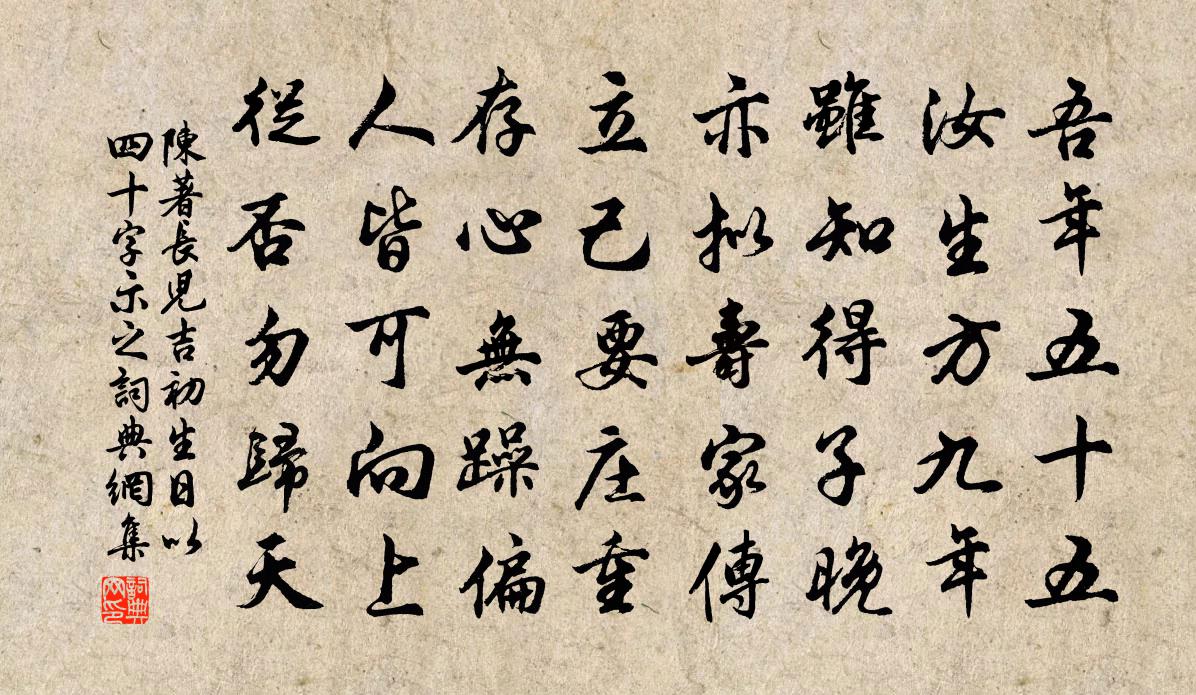 吾年五十五
汝生方九年
雖知得子晚
亦拟壽家傳
立己要庄重
存心無躁偏
人皆可向上
從否勿歸天
陳著長児吉初生日以
四十字示之詞典網集
詞典
网印